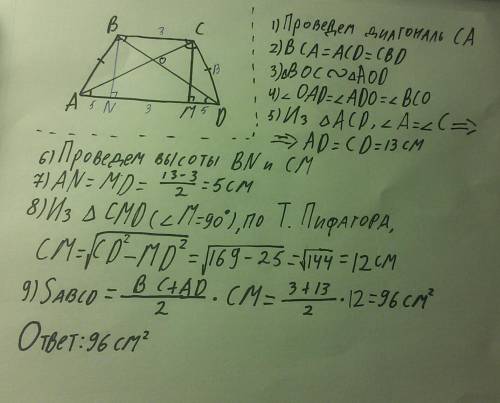 B 3 C
O
B
A 5 N 3 M 5 D
1) Проведем диагональ CA
2) BCA=ACD=CBD
3) ΔBOC∾ΔAOD
4) ∠OAD=∠ADO=∠BCO
5) Из ΔACD, ∠A=∠C ⟹
⟹ AD=CD=13см
6) Проведем высоты BN и CM
7) AN=MD= (13-3)/2 =5см
8) Из ΔCMD (∠M=90°), по Т. Пифагора,
CM=√(CD²-MD²)=√(169-25)=√144=12см
9) SABCD= (BC+AD)/2 · CM= (3+13)/2 ·12=96см²
Ответ: 96см²